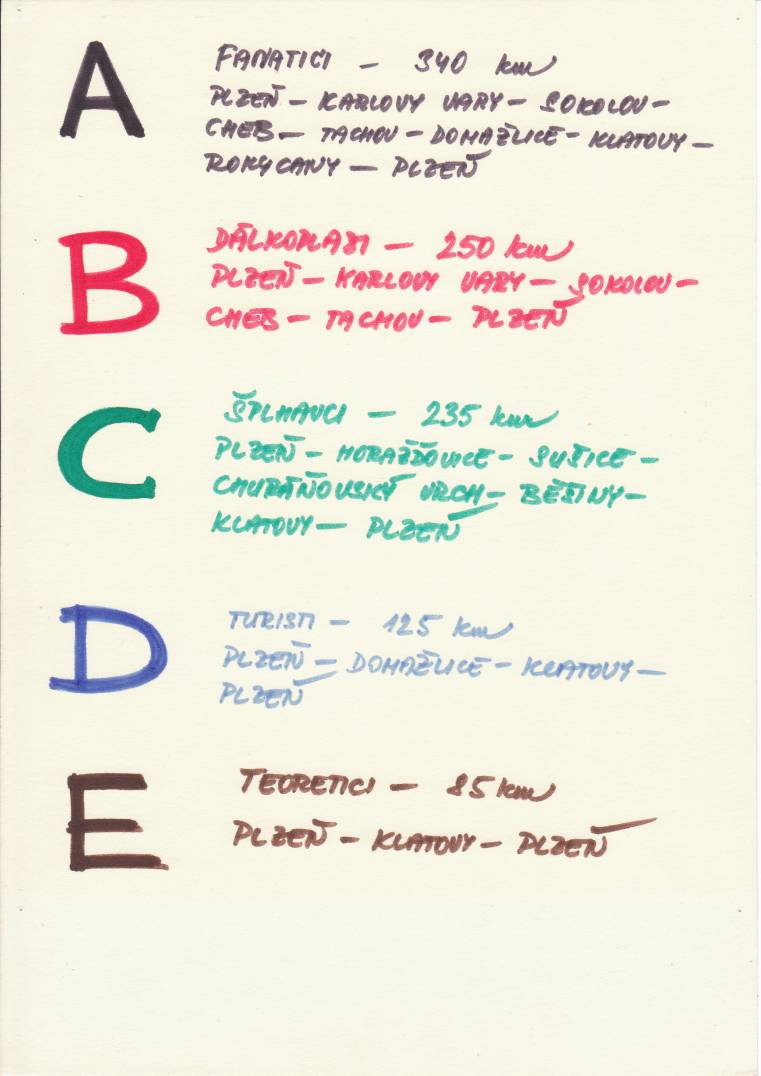 A
FANATICI — 340 km
PLZEŇ — KARLOVY VARY — SOKOLOV —
CHEB — TACHOV — DOMAŽLICE — KLATOVY —
ROKYCANY — PLZEŇ
B
DÁLKOPLAZI — 250 km
PLZEŇ — KARLOVY VARY — SOKOLOV —
CHEB — TACHOV — PLZEŇ
C
ŠPLHAVCI — 235 km
PLZEŇ — HORAŽĎOVICE — SUŠICE —
CHURÁŇOVSKÝ VRCH — BĚŠINY —
KLATOVY — PLZEŇ
D
TURISTI — 125 km
PLZEŇ — DOMAŽLICE — KLATOVY —
PLZEŇ
E
TEORETICI — 85 km
PLZEŇ — KLATOVY — PLZEŇ